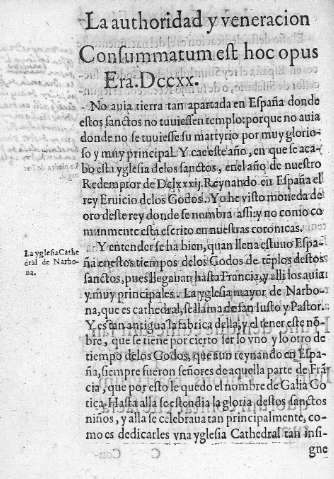 La authoridad y veneracion
Consummatum est hoc opus
Era. Dccxx.
No auia tierra tan apartada en España donde
estos sanctos no tuuiessen templo: porque no auia
donde no se tuuiesse su martyrio por muy glorio-
so y muy principal. Y cae este año, en que se aca-
bo esta yglesia de los sanctos, en el año de nuestro
Redemptor de Dclxxxij. Reynando en España el
rey Eruicio de los Godos. Yo he visto moneda de
oro deste rey donde se nombra assi: y no como co
munmente esta escrito en nuestras coronicas.
Y entender se ha bien, quan llena estuuo Espa-
ña en estos tiempos de los Godos de tẽplos destos
sanctos, pues llegauan hasta Francia, y alli los auia
y muy principales. La yglesia mayor de Narbo-
na, que es cathedral, se llama de san Iusto y Pastor.
Y es tan antigua la fabrica della, y el tener este nõ-
bre, que se tiene por cierto ser lo vno y lo otro de
tiempo de los Godos, que aun reynando en Espa-
ña, siempre fueron señores de aquella parte de Frã
cia, que por esto le quedo el nombre de Galia Go
tica. Hasta alla se estendia la gloria destos sanctos
niños, y alla se celebraua tan principalmente, co-
mo es dedicarles vna yglesia Cathedral tan insi-
gne
La yglesia Cathe
dral de Narbo-
na.